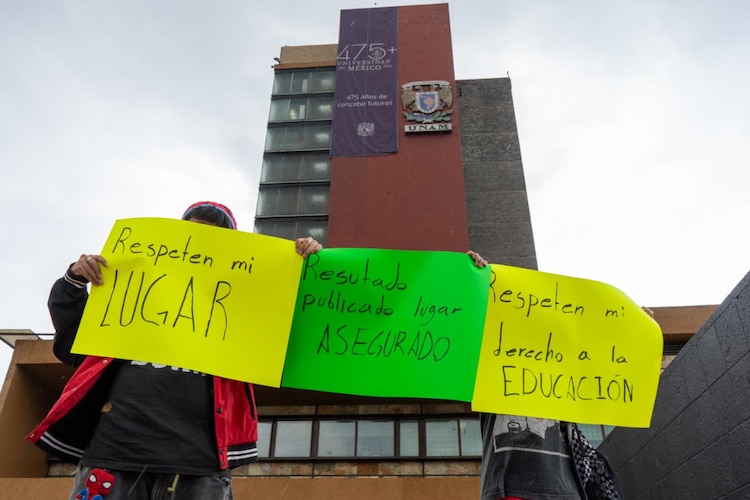 475+
UNIVERSIDAD
DE MÉXICO
475 años de
concebir futuros
UNAM
Respeten mi
LUGAR
Resutado
publicado lugar
ASEGURADO
Respeten mi
derecho a la
EDUCACIÓN